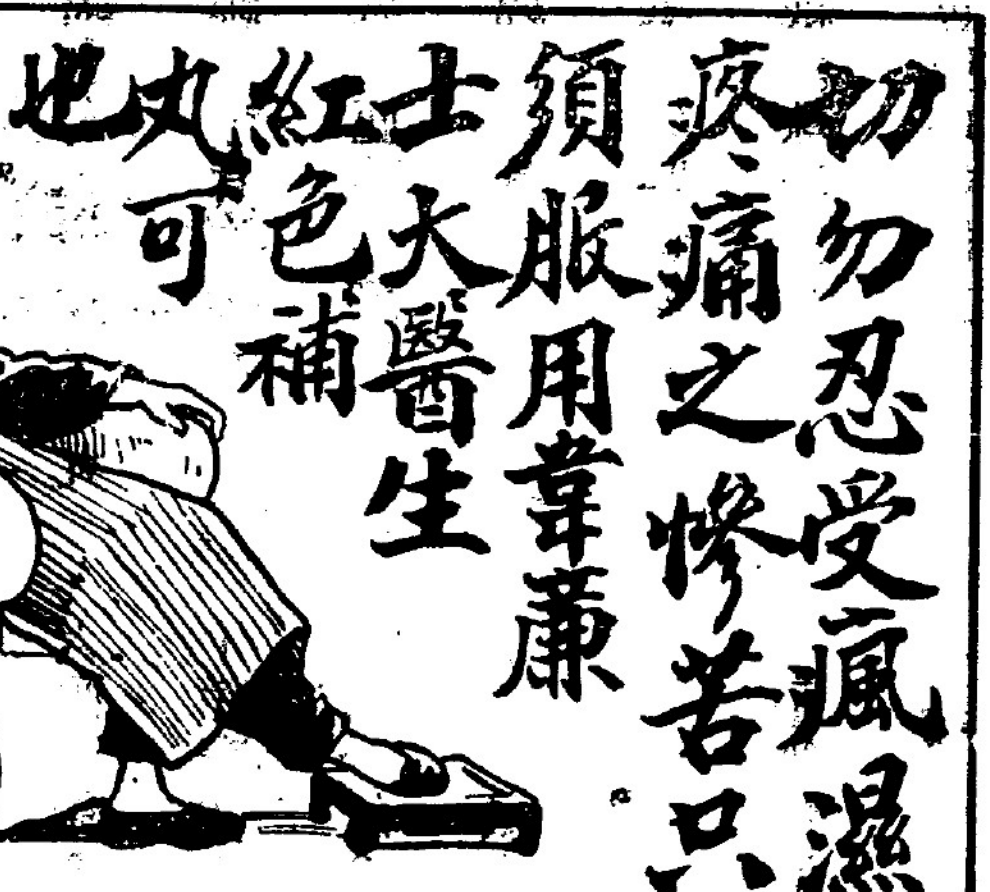 切勿忍受瘋濕
疼痛之慘苦只
須服用韋廉
士大醫生
紅色補
丸可
也